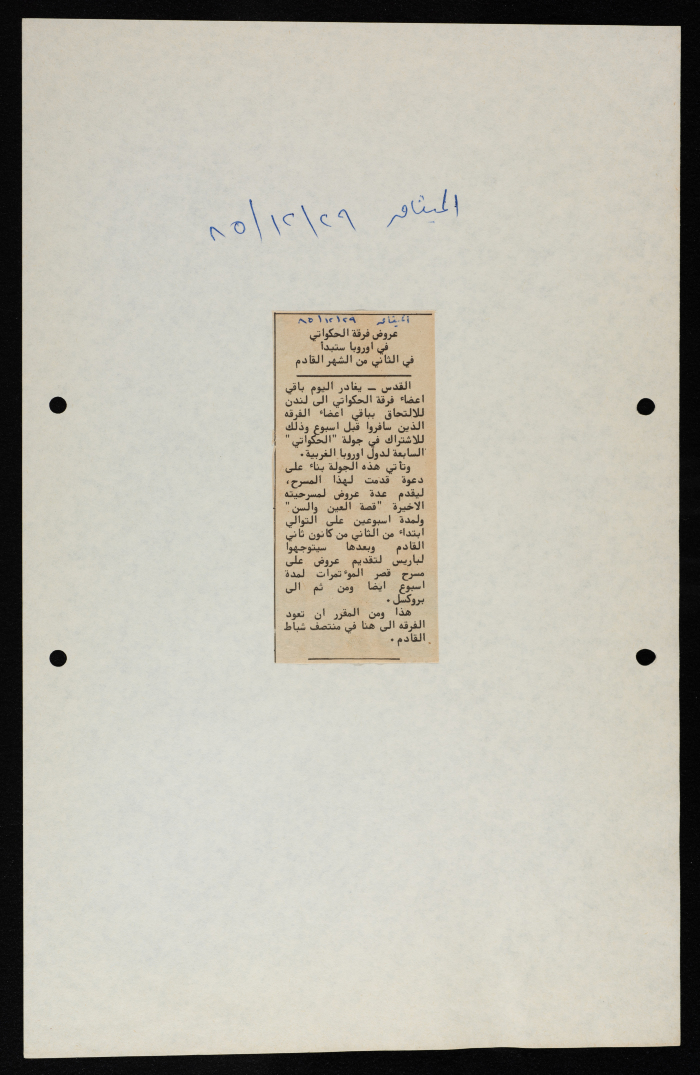 الميثاق ٨٥/١٢/٢٩
الميثاق ٨٥/١٢/٢٩
عروض فرقة الحكواتي
في اوروبا ستبدأ
في الثاني من الشهر القادم
القدس ــ يغادر اليوم باقي
اعضاء فرقة الحكواتي الى لندن
للالتحاق بباقي اعضاء الفرقه
الذين سافروا قبل اسبوع وذلك
للاشتراك في جولة "الحكواتي"
السابعة لدول اوروبا الغربية •
وتأتي هذه الجولة بناء على
دعوة قدمت لهذا المسرح،
ليقدم عدة عروض لمسرحيته
الاخيرة "قصة العين والسن"
ولمدة اسبوعين على التوالي
ابتداء من الثاني من كانون ثاني
القادم وبعدها سيتوجهوا
لباريس لتقديم عروض على
مسرح قصر الموءتمرات لمدة
اسبوع ايضا ومن ثم الى
بروكسل •
هذا ومن المقرر ان تعود
الفرقه الى هنا في منتصف شباط
القادم •